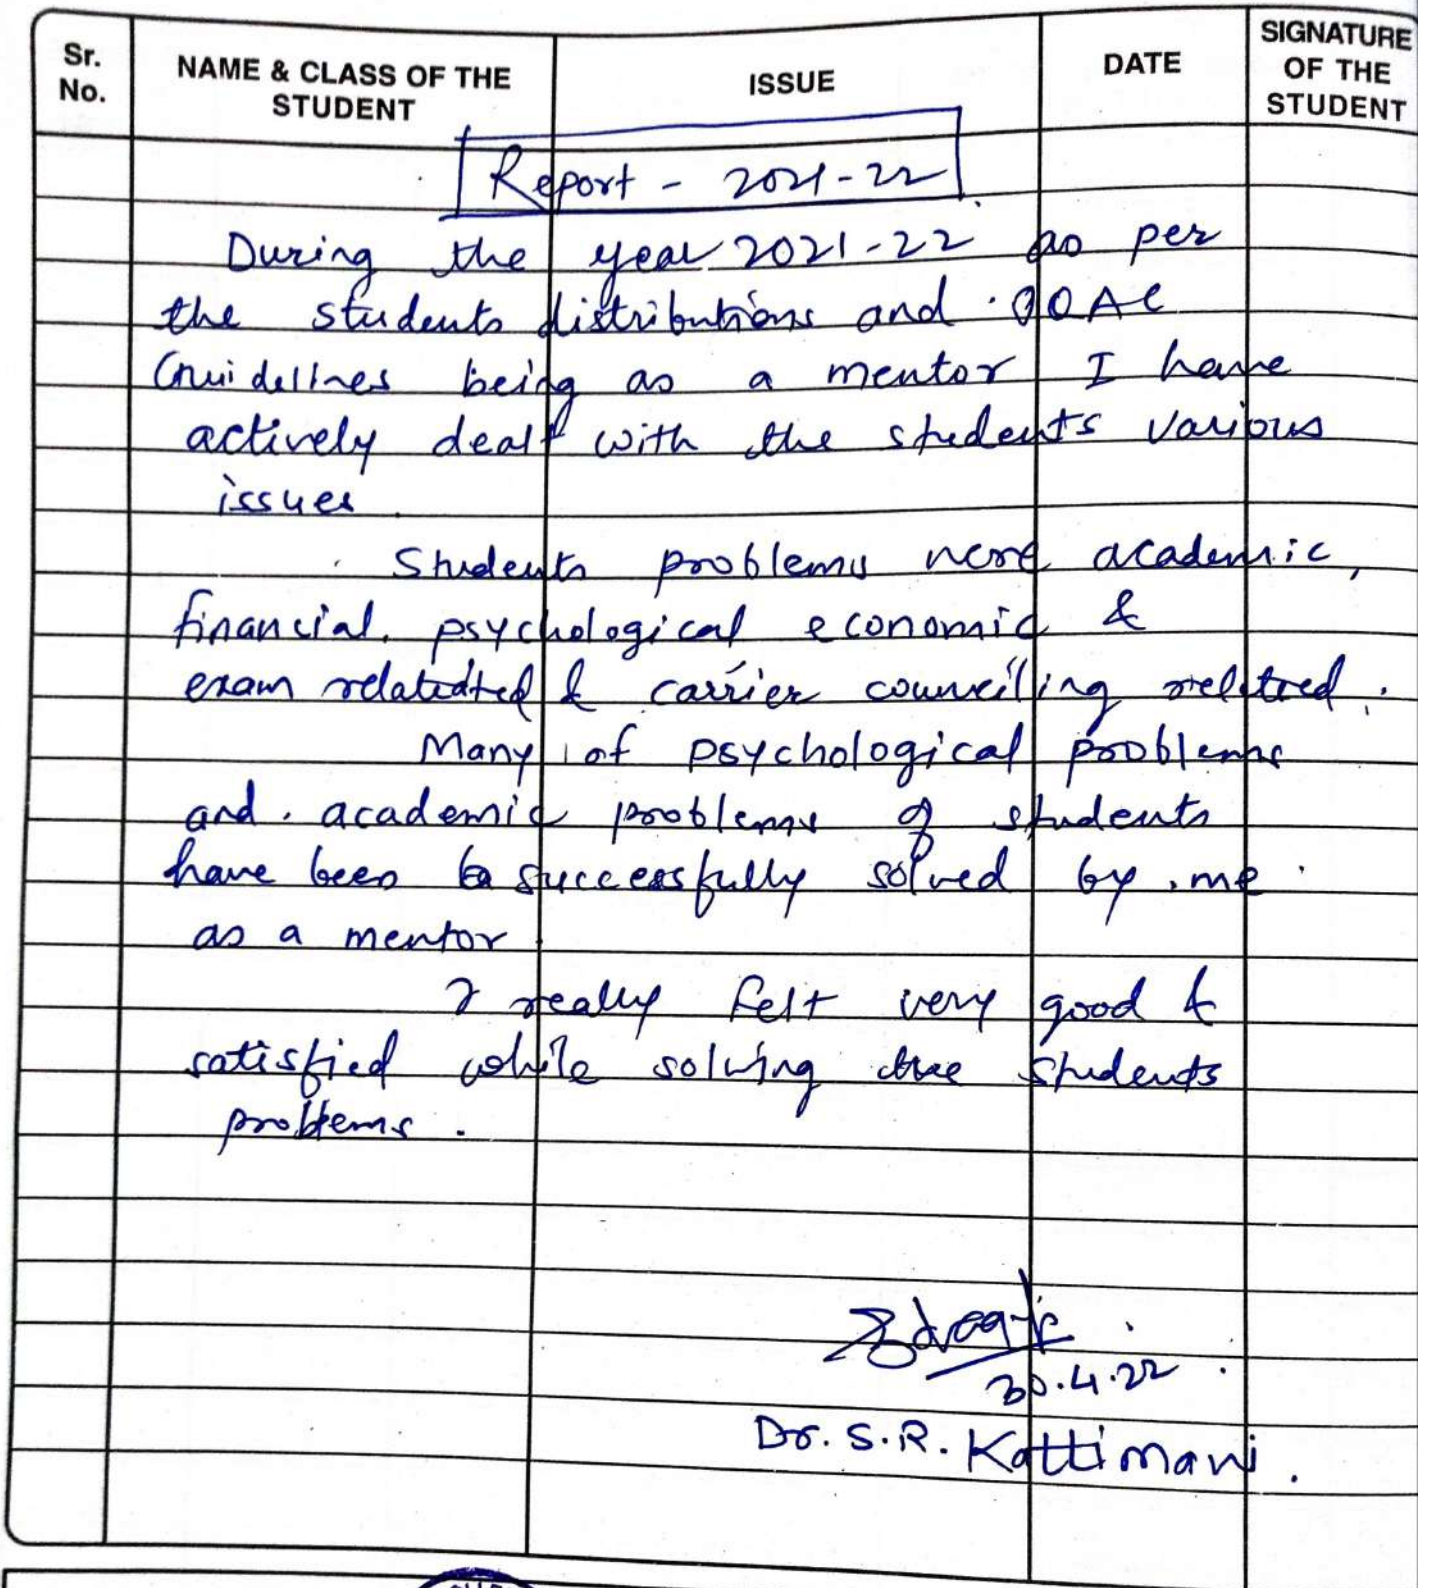 Sr. No.
NAME & CLASS OF THE STUDENT
ISSUE
DATE
SIGNATURE OF THE STUDENT
Report - 2021-22
During the year 2021-22 as per
the students distributions and
Guidelines being as a mentor I have
actively dealt with the students various
issues
Students problems were academic,
financial, psychological economic &
exam related & carrier councilling related.
Many of psychological problems
and academic problems of students
have been successfully solved by me
as a mentor
I really felt very good &
satisfied while solving the students
problems.
30.4.22
Dr. S.R. Kattimani.